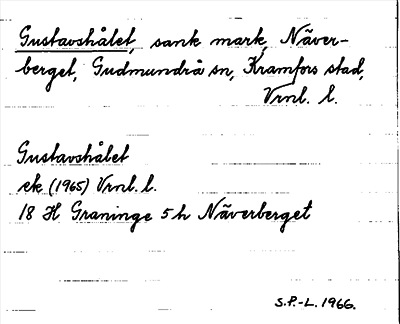 Gustavshålet, sank mark, Näver-
berget, Gudmundrå sn, Kramfors stad,
Vrnl. l.
Gustavshålet
ek (1965) Vrnl. l.
18 H Graninge 5 h Näverberget
S.P.-L. 1966.